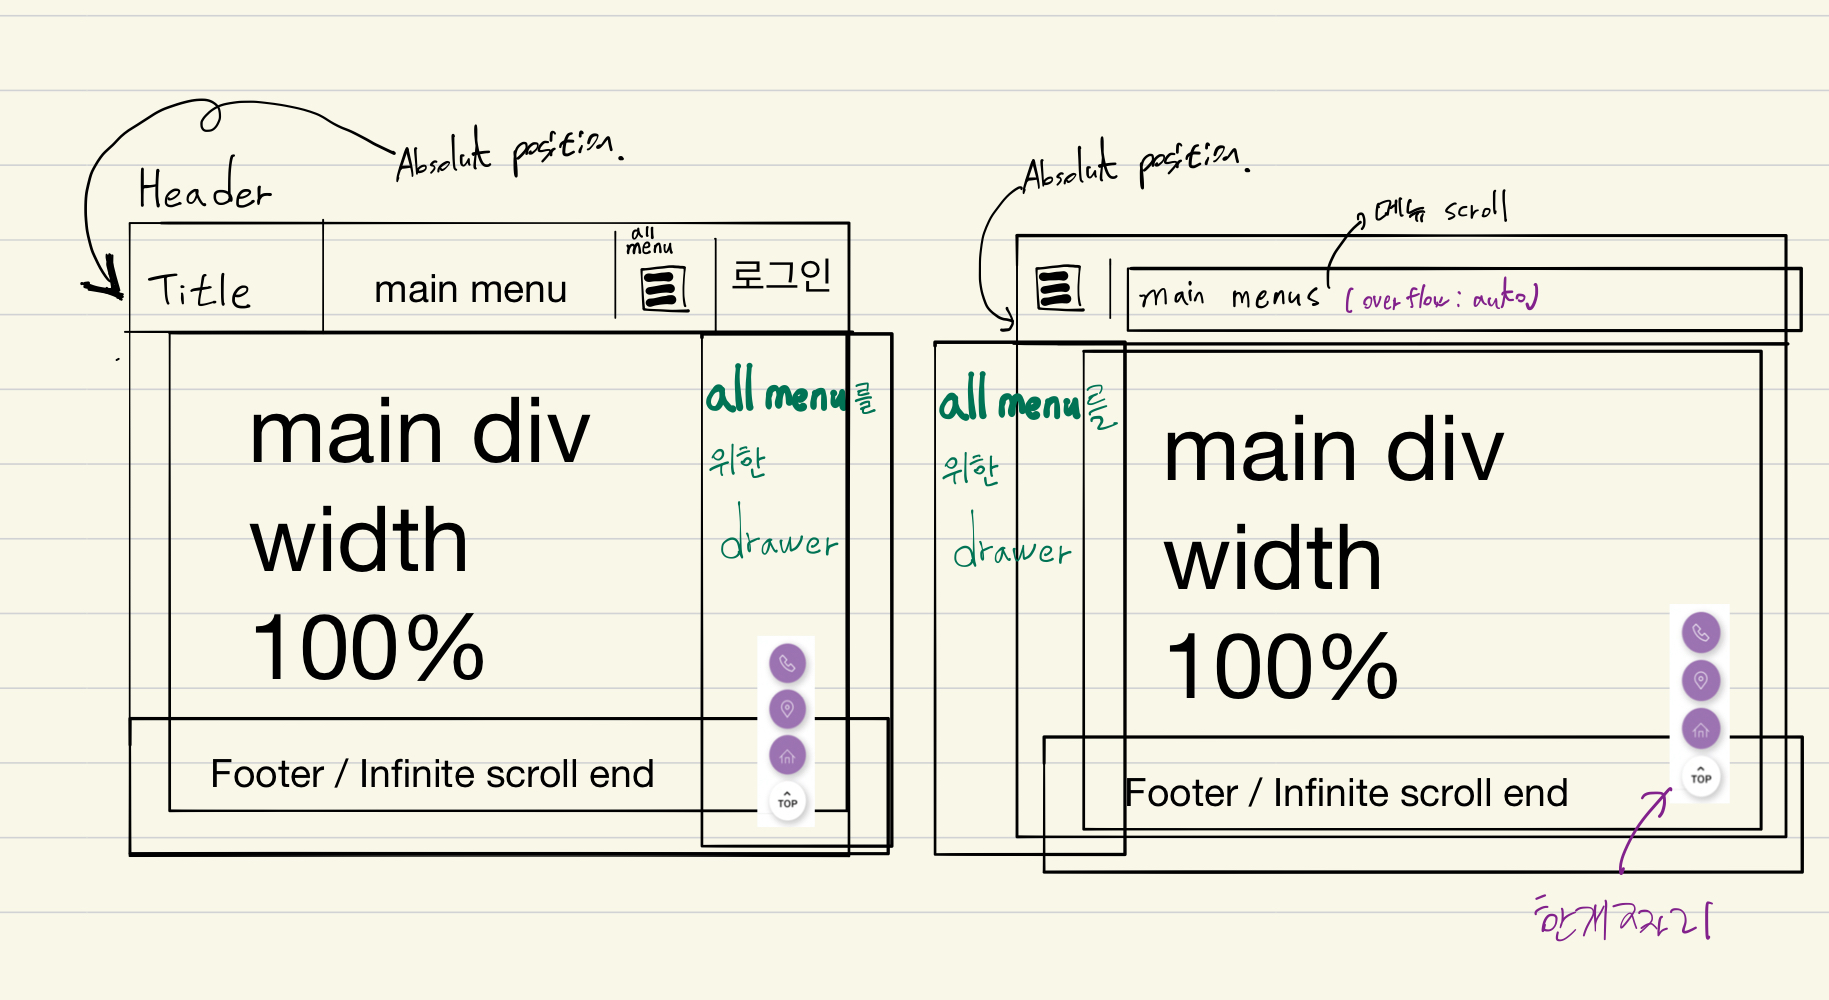 Absolut position.
Header
Title
main menu
all
menu
로그인
main div
width
100%
all menu를
위한
drawer
TOP
Footer / Infinite scroll end
Absolut position.
메뉴 scroll
main menus (overflow: auto)
all menu를
위한
drawer
main div
width
100%
TOP
Footer / Infinite scroll end